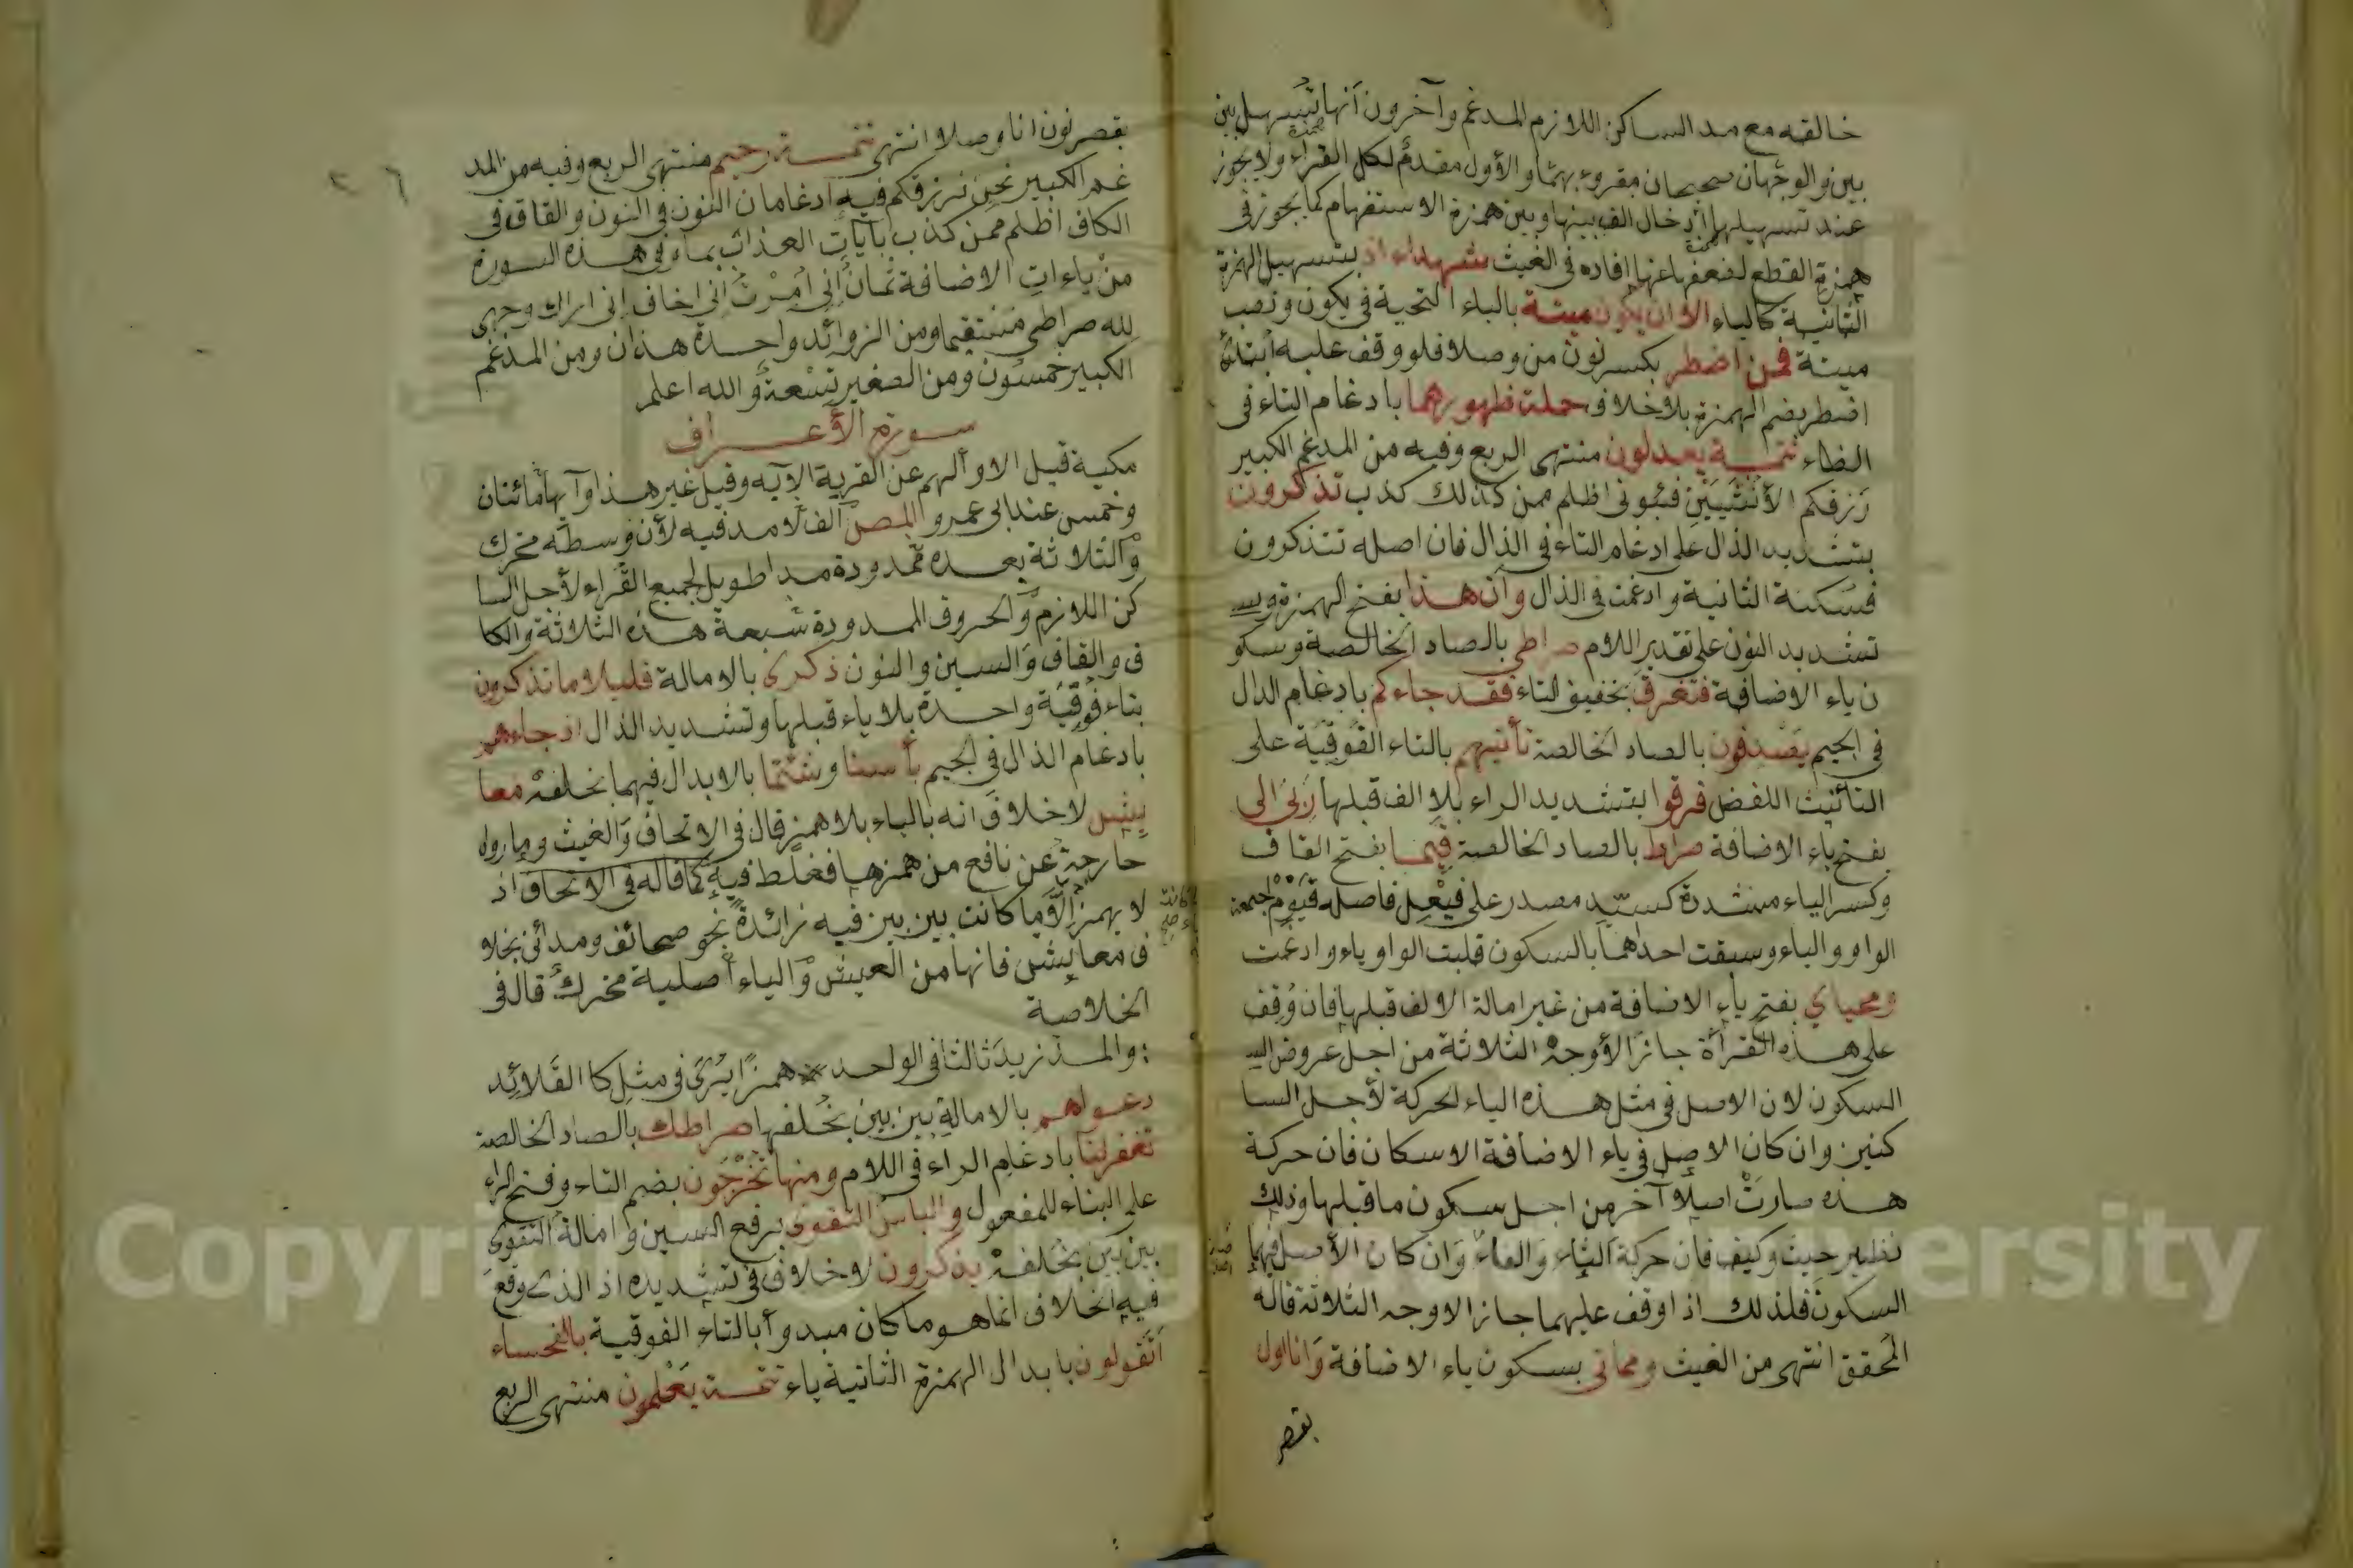 خالصة مع مد الساكن اللازم المدغم وآخرون أنها تسهل بين
بين والوجهان صحيحان مقروء بهما والأول مقدم لكل القراء ولا يجوز
عند تسهيلها إدخال الف بينها وبين همزة الاستفهام كما يجوز في
همزة القطع لضعفها عنها افاده في الغيث شهداء اذ بتسهيل الهمزة
الثانية كالياء الا ان يكون ميتة بالياء التحتية في يكون ونصب
ميتة فمن اضطر بكسر نون من وصلا فلو وقف عليه ابتدئ
اضطر بضم الهمزة بلا خلاف حملت ظهورهما بادغام التاء في
الظاء تتمـة يعدلون منتهى الربع وفيه من المدغم الكبير
رزقكم الأنثيين نبئوني اظلم ممن كذلك كذب تذكرون
بتشديد الذال على ادغام التاء في الذال فان اصله تتذكرون
فسكنة الثانية وادغمت في الذال وأن هـذا بفتح الهمزة و
تشديد النون على تقدير اللام صراطي بالصاد الخالصة وسكو
ن ياء الاضافة فتفرق بتخفيف التاء فقد جاءكم بادغام الدال
في الجيم يصدفون بالصاد الخالصة تأتيهم بالتاء الفوقية على
التأنيث اللفض فرقوا بتشديد الراء بلا الف قبلها ربي الى
بفتح ياء الاضافة صراط بالصاد الخالصة قيما بفتح القاف
وكسر الياء مشددة كسيد مصدر على فيعل فاصله قيوم اجتمعة
الواو والياء وسبقت احداهما بالسكون قلبت الواو ياء وادغمت
ومحياي بفتح ياء الاضافة من غير امالة الالف قبلها فان وقف
على هذه القرأة جاز الأوجه الثلاثة من اجل عروض
السكون لان الاصل في مثل هـذه الياء الحركة لأجل السا
كنين وان كان الاصل في ياء الاضافة الاسكان فان حركة
هـذه صارت اصلا آخر من اجل سكون ما قبلها وذلك
نظير حيث وكيف فان حركة الثاء والفاء وان كان الأصل فيهما
السكون فلذلك اذا وقف عليهما جاز الاوجه الثلاثة قاله
المحقق انتهى من الغيث ومماتي بسكون ياء الاضافة وانا اول
بقصر
٢٦
بقصر نون انا وصلا انتهى تتمـة رحيم منتهى الربع وفيه من المد
غم الكبير نحن نرزقكم فيه ادغامان النون في النون والقاف في
الكاف اظلم ممن كذب بآيات العذاب بما وفي هـذه السورة
من ياءات الاضافة ثمان إني أمرت إني اخاف اني اراك وجهي
لله صراطي مستقيما ومن الزوائد واحدة هذان ومن المدغم
الكبير خمسون ومن الصغير تسعة والله اعلم
سورة الأعراف
مكية قيل الا وألهم عن القرية الآيه وقيل غير هـذا وآيها مائتان
وخمس عند ابي عمرو المص ألف لا مد فيه لأن وسطه متحرك
والثلاثة بعـده ممدودة مدا طويلا لجميع القراء لأجل السا
كن اللازم والحروف الممدودة سبعة هـذه الثلاثة والكا
ف والقاف والسين والنون ذكرى بالامالة قليلا ما تذكرون
بتاء فوقية واحدة بلا ياء قبلها وتشديد الذال اذ جاءهم
بادغام الذال في الجيم بأسنا وشئتما بالابدال فيهما بخلفه معا
يش لا خلاف انه بالياء بلا همز قال في الاتحاف والغيث وما رواه
خارجة عن نافع من همزها فغلط فيه كما قاله في الاتحاف اذ
لا يهمز إلا ما كانت بين بين فيه زائدة نحو صحائف ومدائن بخلا
ف معايش فانها من العيش والياء أصلية متحرك قال في
الخلاصة
: والمـد زيد ثالثا في الواحد همزا يرى في مثل كا القلائد
دعواهم بالامالة بين بين بخلفها صراطك بالصاد الخالصة
تغفر لنا بادغام الراء في اللام ومنها تخرجون بضم التاء وفتح الراء
على البناء للمفعول ولباس التقوى برفع السين وامالة التقوى
بين بين بخلفه يذكرون لا خلاف في تشديده اذ الذي وقع
فيه الخلاف انما هـو ما كان مبدوأ بالتاء الفوقية بالفحساء
أتقولون بابدال الهمزة الثانية ياء تتمـة يعلمون منتهى الربع
Copyright © King Saud University